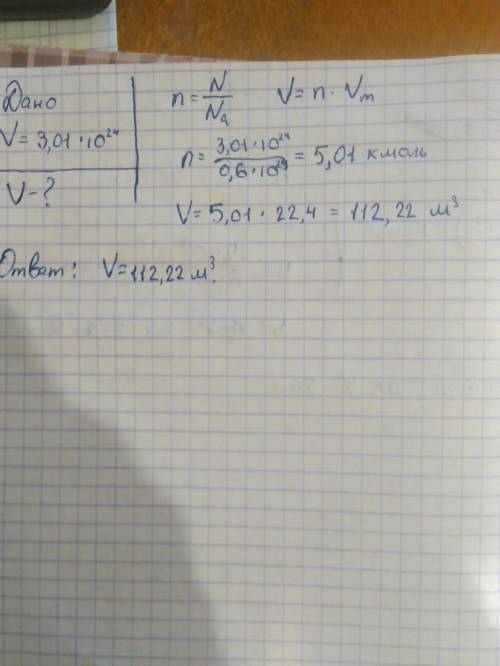 Дано
V = 3,01 · 10²⁴
V - ?
n = N/Nₐ V = n · Vₘ
n = 3,01·10²⁴/0,6·10²⁴ = 5,01 кмоль
V = 5,01 · 22,4 = 112,22 м³
Ответ: V = 112,22 м³.